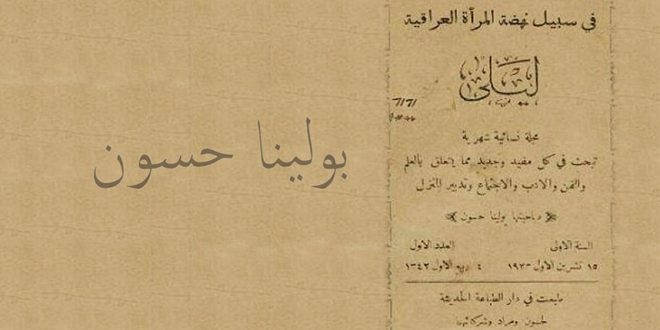 في سبيل نهضة المرأة العراقية
ليلى
مجلة نسائية شهرية
تبحث في كل مفيد وجديد مما يتعلق بالعلم
والفن والادب والاجتماع وتدبير المنزل
صاحبتها بولينا حسون
السنة الاولى العدد الاول
١٥ تشرين الاول ١٩٢٣ ٤ ربيع الاول ١٣٤٢
طبعت في دار الطباعة الحديثة
لحسون ومراد وشركائهما
بولينا حسون